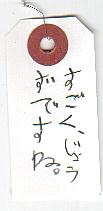 すごくじょう
ずですね。